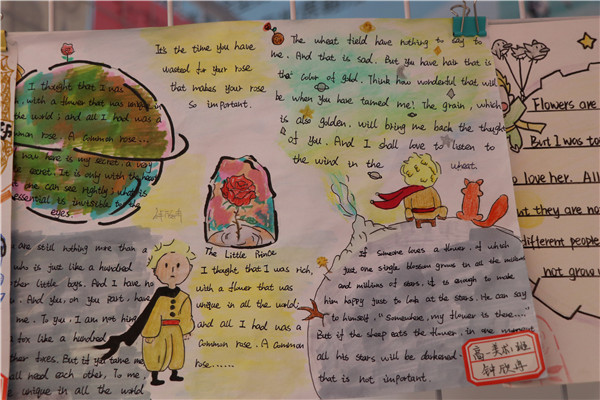 It's the time you have
wasted for your rose
that makes your rose
so important.
The wheat field have nothing to say to
me. And that is sad. But you have hair that is
the color of gold. Think how wonderful that will
be when you have tamed me! The grain, which
is also golden, will bring me back the thought
of you. And I shall love to listen to
the wind in the wheat.
I thught that I was
with a flower that was unique in
the world; and all I had was a
common rose. A common rose...
now here is my secret, a very
secret. It is only with the
one can see rightly; what is
essential is invisible to the
eyes.
are still nothing more than a
who is just like a hundred
other little boys. And I have no
And you, on you part, have
me. To you, I am not
a fox like a hundred
other foxes. But if you tame me
all need each other. To me,
unique in all the world
The Little Prince
I thught that I was rich,
with a flower that was
unique in all the world;
and all I had was a
common rose. A common
rose......
If someone loves a flower, of which
just one single blossom grows in all the
and millions of stars, it is enough to make
him happy just to look at the stars. He can say
to himself, "Somewhere, my flower is there...."
But if the sheep eats the flower, in one moment
all his stars will be darkened.
that is not important.
高一美术1班
Flowers are
But I was to
love her. All
but they are no
different people
not grow